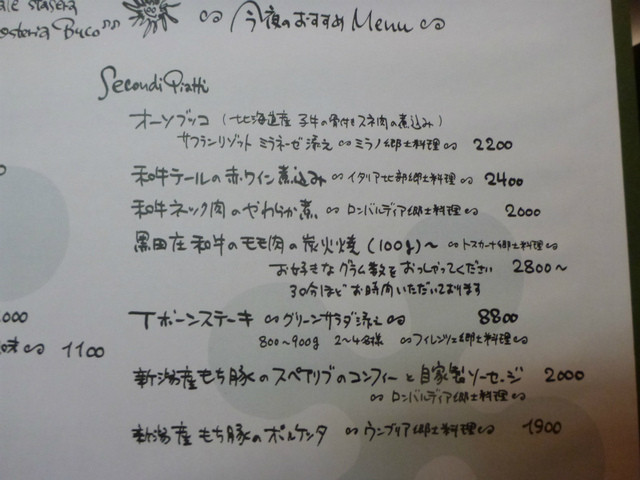 stasera
osteria Buco
∽ 今夜のおすすめ Menu ∽
Secondi Piatti
オーソブッコ (北海道産 子牛の骨付きスネ肉の煮込み)
サフランリゾット ミラネーゼ添え ∽ ミラノ郷土料理∽ 2200
和牛テールの赤ワイン煮込み ∽イタリア北部郷土料理∽ 2400
和牛ネック肉のやわらか煮 ∽ ロンバルディア郷土料理∽ 2000
黒田庄和牛のモモ肉の炭火焼 (100g)〜 ∽トスカーナ郷土料理∽
お好きなグラム数をおっしゃってください 2800〜
30分ほどお時間いただいております
Tボーンステーキ ∽グリーンサラダ添え∽ 8800
800〜900g 2〜4名様 ∽フィレンツェ郷土料理∽
∽ 1100
新潟産もち豚のスペアリブのコンフィーと自家製ソーセージ 2000
∽ ロンバルディア郷土料理∽
新潟産もち豚のポルケッタ ∽ウンブリア郷土料理∽ 1900